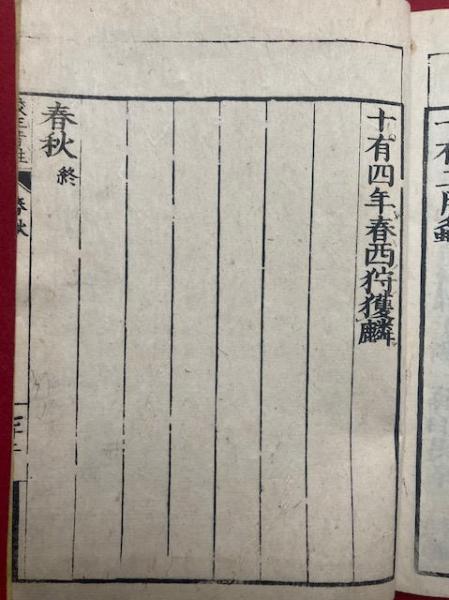 十有二月螽
十有四年春西狩獲麟
春秋終
春秋